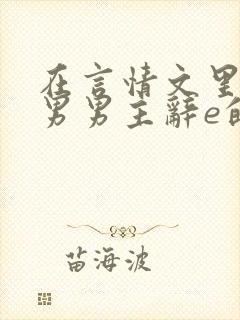 在言情文里
男男主辞e的
苗海波